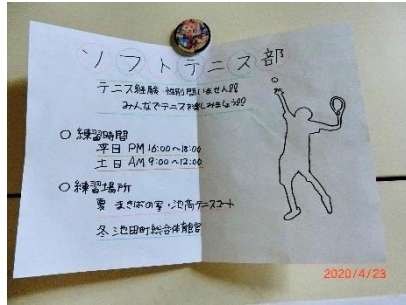 ソフトテニス部
テニス経験 性別問いません!!
みんなでテニスを楽しみましょう!!
○練習時間
平日 PM 16:00～18:00
土日 AM 9:00～12:00
○練習場所
夏 まきばの家・池高テニスコート
冬 池田町総合体育館
2020/4/23